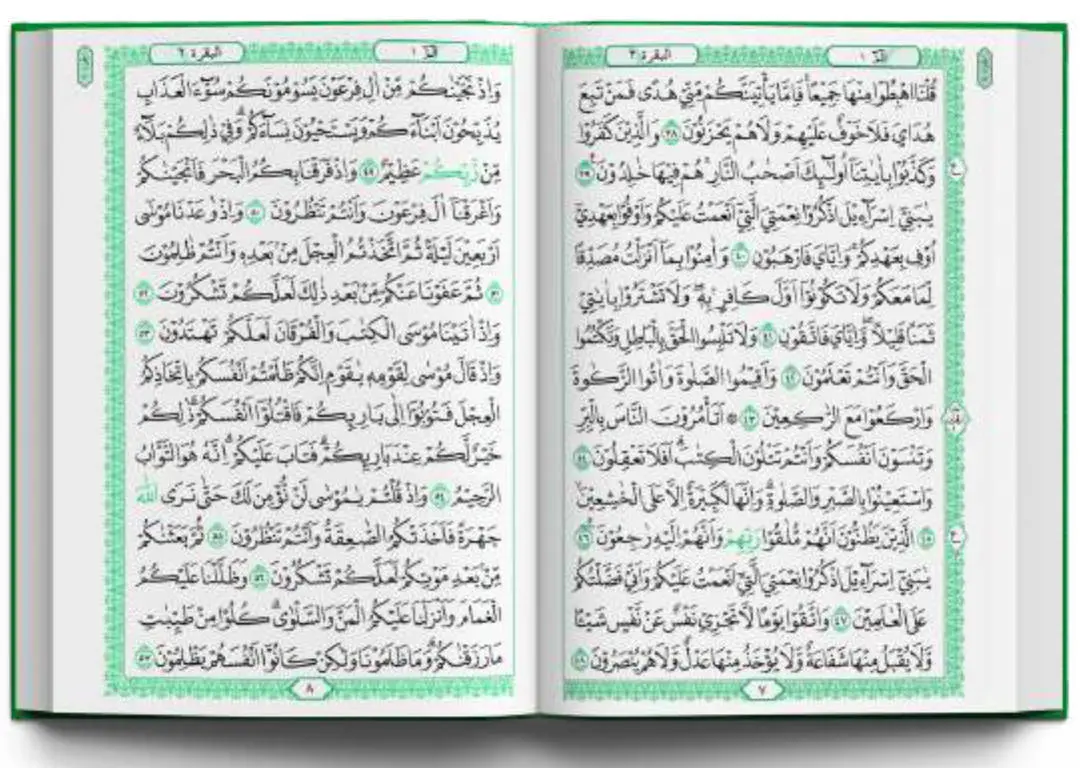 الجزء ١
البقرة ٢
قُلْنَا اهْبِطُوْا مِنْهَا جَمِيْعًا ۚ فَاِمَّا يَأْتِيَنَّكُمْ مِّنِّيْ هُدًى فَمَنْ تَبِعَ
هُدَايَ فَلَا خَوْفٌ عَلَيْهِمْ وَلَا هُمْ يَحْزَنُوْنَ ٣٨ وَالَّذِيْنَ كَفَرُوْا
وَكَذَّبُوْا بِاٰيٰتِنَآ اُولٰۤىِٕكَ اَصْحٰبُ النَّارِ ۚ هُمْ فِيْهَا خٰلِدُوْنَ ٣٩
يٰبَنِيْٓ اِسْرَاۤءِيْلَ اذْكُرُوْا نِعْمَتِيَ الَّتِيْٓ اَنْعَمْتُ عَلَيْكُمْ وَاَوْفُوْا بِعَهْدِيْٓ
اُوْفِ بِعَهْدِكُمْ ۚ وَاِيَّايَ فَارْهَبُوْنِ ٤٠ وَاٰمِنُوْا بِمَآ اَنْزَلْتُ مُصَدِّقًا
لِّمَا مَعَكُمْ وَلَا تَكُوْنُوْٓا اَوَّلَ كَافِرٍۢ بِهٖ ۖ وَلَا تَشْتَرُوْا بِاٰيٰتِيْ
ثَمَنًا قَلِيْلًا ۖ وَّاِيَّايَ فَاتَّقُوْنِ ٤١ وَلَا تَلْبِسُوا الْحَقَّ بِالْبَاطِلِ وَتَكْتُمُوا
الْحَقَّ وَاَنْتُمْ تَعْلَمُوْنَ ٤٢ وَاَقِيْمُوا الصَّلٰوةَ وَاٰتُوا الزَّكٰوةَ
وَارْكَعُوْا مَعَ الرّٰكِعِيْنَ ٤٣ ۞ اَتَأْمُرُوْنَ النَّاسَ بِالْبِرِّ
وَتَنْسَوْنَ اَنْفُسَكُمْ وَاَنْتُمْ تَتْلُوْنَ الْكِتٰبَ ۗ اَفَلَا تَعْقِلُوْنَ ٤٤
وَاسْتَعِيْنُوْا بِالصَّبْرِ وَالصَّلٰوةِ ۗ وَاِنَّهَا لَكَبِيْرَةٌ اِلَّا عَلَى الْخٰشِعِيْنَۙ
٤٥ الَّذِيْنَ يَظُنُّوْنَ اَنَّهُمْ مُّلٰقُوْا رَبِّهِمْ وَاَنَّهُمْ اِلَيْهِ رٰجِعُوْنَ ٤٦
يٰبَنِيْٓ اِسْرَاۤءِيْلَ اذْكُرُوْا نِعْمَتِيَ الَّتِيْٓ اَنْعَمْتُ عَلَيْكُمْ وَاَنِّيْ فَضَّلْتُكُمْ
عَلَى الْعٰلَمِيْنَ ٤٧ وَاتَّقُوْا يَوْمًا لَّا تَجْزِيْ نَفْسٌ عَنْ نَّفْسٍ شَيْـًٔا
وَّلَا يُقْبَلُ مِنْهَا شَفَاعَةٌ وَّلَا يُؤْخَذُ مِنْهَا عَدْلٌ وَّلَا هُمْ يُنْصَرُوْنَ ٤٨
٧
الجزء ١
البقرة ٢
وَاِذْ نَجَّيْنٰكُمْ مِّنْ اٰلِ فِرْعَوْنَ يَسُوْمُوْنَكُمْ سُوْۤءَ الْعَذَابِ
يُذَبِّحُوْنَ اَبْنَاۤءَكُمْ وَيَسْتَحْيُوْنَ نِسَاۤءَكُمْ ۗ وَفِيْ ذٰلِكُمْ بَلَاۤءٌ
مِّنْ رَّبِّكُمْ عَظِيْمٌ ٤٩ وَاِذْ فَرَقْنَا بِكُمُ الْبَحْرَ فَاَنْجَيْنٰكُمْ
وَاَغْرَقْنَآ اٰلَ فِرْعَوْنَ وَاَنْتُمْ تَنْظُرُوْنَ ٥٠ وَاِذْ وٰعَدْنَا مُوْسٰٓى
اَرْبَعِيْنَ لَيْلَةً ثُمَّ اتَّخَذْتُمُ الْعِجْلَ مِنْۢ بَعْدِهٖ وَاَنْتُمْ ظٰلِمُوْنَ
٥١ ثُمَّ عَفَوْنَا عَنْكُمْ مِّنْۢ بَعْدِ ذٰلِكَ لَعَلَّكُمْ تَشْكُرُوْنَ ٥٢
وَاِذْ اٰتَيْنَا مُوْسَى الْكِتٰبَ وَالْفُرْقَانَ لَعَلَّكُمْ تَهْتَدُوْنَ ٥٣
وَاِذْ قَالَ مُوْسٰى لِقَوْمِهٖ يٰقَوْمِ اِنَّكُمْ ظَلَمْتُمْ اَنْفُسَكُمْ بِاتِّخَاذِكُمُ
الْعِجْلَ فَتُوْبُوْٓا اِلٰى بَارِىِٕكُمْ فَاقْتُلُوْٓا اَنْفُسَكُمْ ۗ ذٰلِكُمْ
خَيْرٌ لَّكُمْ عِنْدَ بَارِىِٕكُمْ ۗ فَتَابَ عَلَيْكُمْ ۗ اِنَّهٗ هُوَ التَّوَّابُ
الرَّحِيْمُ ٥٤ وَاِذْ قُلْتُمْ يٰمُوْسٰى لَنْ نُّؤْمِنَ لَكَ حَتّٰى نَرَى اللّٰهَ
جَهْرَةً فَاَخَذَتْكُمُ الصّٰعِقَةُ وَاَنْتُمْ تَنْظُرُوْنَ ٥٥ ثُمَّ بَعَثْنٰكُمْ
مِّنْۢ بَعْدِ مَوْتِكُمْ لَعَلَّكُمْ تَشْكُرُوْنَ ٥٦ وَظَلَّلْنَا عَلَيْكُمُ
الْغَمَامَ وَاَنْزَلْنَا عَلَيْكُمُ الْمَنَّ وَالسَّلْوٰى ۗ كُلُوْا مِنْ طَيِّبٰتِ
مَا رَزَقْنٰكُمْ ۗ وَمَا ظَلَمُوْنَا وَلٰكِنْ كَانُوْٓا اَنْفُسَهُمْ يَظْلِمُوْنَ ٥٧
٨